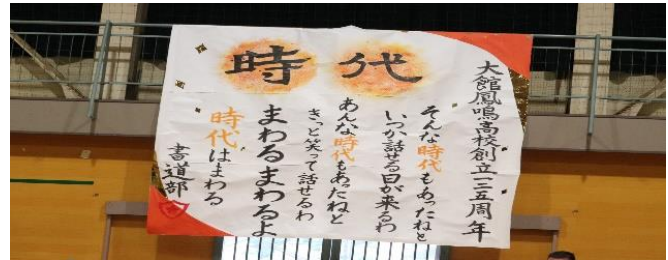 時代
大館鳳鳴高校創立一二五周年
そんな時代もあったねと
いつか話せる日が来るわ
あんな時代もあったねと
きっと笑って話せるわ
まわるまわるよ
時代はまわる
書道部